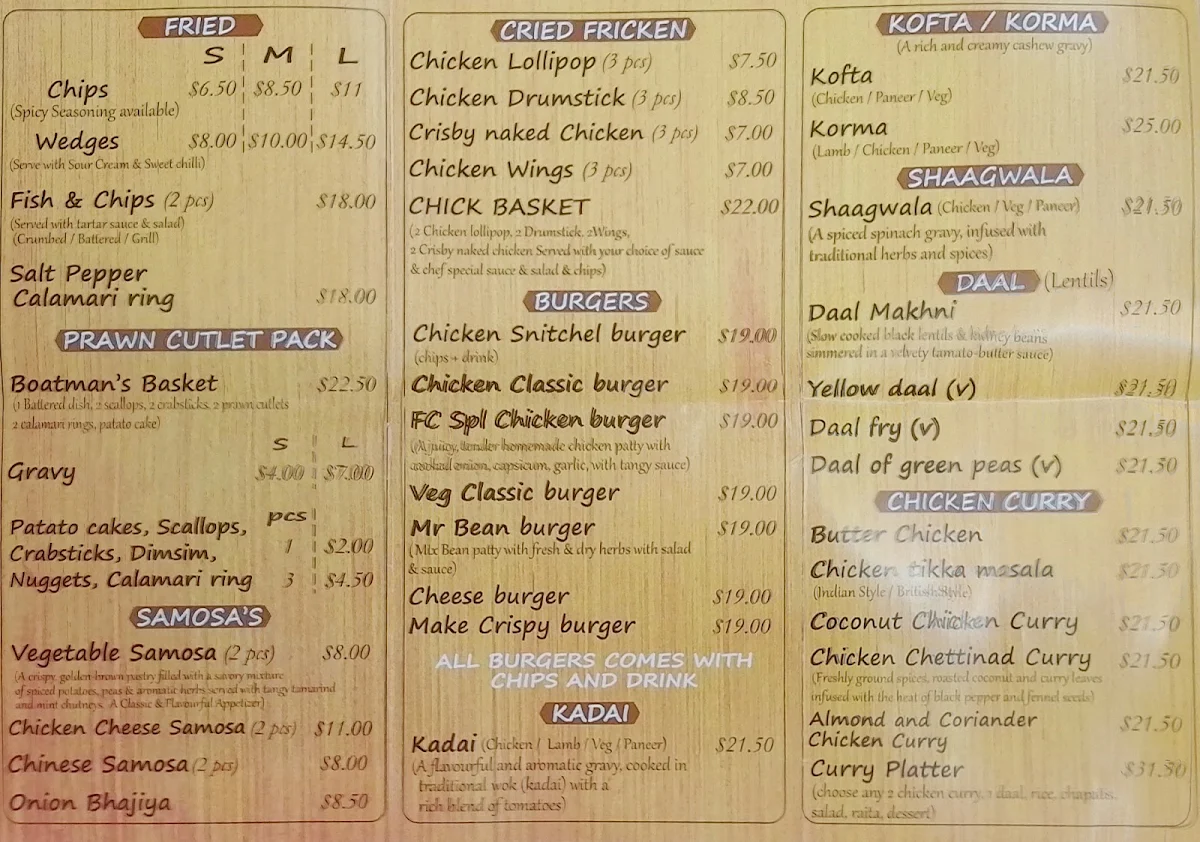 FRIED
S M L
Chips $6.50 $8.50 $11
(Spicy Seasoning available)
Wedges $8.00 $10.00 $14.50
(Serve with Sour Cream & Sweet chilli)
Fish & Chips (2 pcs) $18.00
(Served with tartar sauce & salad)
(Crumbed / Battered / Grill)
Salt Pepper
Calamari ring $18.00
PRAWN CUTLET PACK
Boatman's Basket $22.50
(1 Battered dish, 2 scallops, 2 crabsticks, 2 prawn cutlets
2 calamari rings, patato cake)
S L
Gravy $4.00 $7.00
pcs
Patato cakes, Scallops,
Crabsticks, Dimsim, 1 $2.00
Nuggets, Calamari ring 3 $4.50
SAMOSA'S
Vegetable Samosa (2 pcs) $8.00
(A crispy, golden-brown pastry filled with a savory mixture
of spiced potatoes, peas & aromatic herbs served with tangy tamarind
and mint chutneys. A Classic & Flavourful Appetizer)
Chicken Cheese Samosa (2 pcs) $11.00
Chinese Samosa (2 pcs) $8.00
Onion Bhajiya $8.50
CRIED FRICKEN
Chicken Lollipop (3 pcs) $7.50
Chicken Drumstick (3 pcs) $8.50
Crisby naked Chicken (3 pcs) $7.00
Chicken Wings (3 pcs) $7.00
CHICK BASKET $22.00
(2 Chicken lollipop, 2 Drumstick, 2Wings,
2 Crisby naked chicken Served with your choice of sauce
& chef special sauce & salad & chips)
BURGERS
Chicken Snitchel burger $19.00
(chips + drink)
Chicken Classic burger $19.00
FC Spl Chicken burger $19.00
(A juicy, tender homemade chicken patty with
onion, capsicum, garlic, with tangy sauce)
Veg Classic burger $19.00
Mr Bean burger $19.00
(Mix Bean patty with fresh & dry herbs with salad
& sauce)
Cheese burger $19.00
Make Crispy burger $19.00
ALL BURGERS COMES WITH
CHIPS AND DRINK
KADAI
Kadai (Chicken / Lamb / Veg / Paneer) $21.50
(A flavourful and aromatic gravy, cooked in
traditional wok (kadai) with a
rich blend of tomatoes)
KOFTA / KORMA
(A rich and creamy cashew gravy)
Kofta $21.50
(Chicken / Paneer / Veg)
Korma $25.00
(Lamb / Chicken / Paneer / Veg)
SHAAGWALA
Shaagwala (Chicken / Veg / Paneer) $21.50
(A spiced spinach gravy, infused with
traditional herbs and spices)
DAAL (Lentils)
Daal Makhni $21.50
(Slow cooked black lentils & kidney beans
simmered in a velvety tamato-butter sauce)
Yellow daal (v) $21.50
Daal fry (v) $21.50
Daal of green peas (v) $21.50
CHICKEN CURRY
Butter Chicken $21.50
Chicken tikka masala $21.50
(Indian Style / British Style)
Coconut Chicken Curry $21.50
Chicken Chettinad Curry $21.50
(Freshly ground spices, roasted coconut and curry leaves
infused with the heat of black pepper and fennel seeds)
Almond and Coriander $21.50
Chicken Curry
Curry Platter $31.50
(choose any 2 chicken curry, 1 daal, rice, chapatis,
salad, raita, dessert)